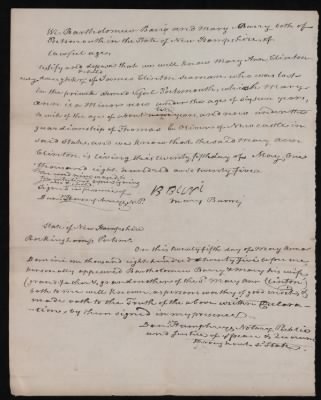 We Bartholomew Barig and Mary Barry both of
Portsmouth in the State of New Hampshire of
lawful age,
testify and depose that we well know Mary Ann Clinton
only daughter of James Clinton Seaman who was lost
in the private armed of Portsmouth, which Mary
Ann is a Minor now under the age of sixteen years,
to wit of the age of about years, and now under the
guardianship of Thomas of Newcastle in
said State, and we know that the said Mary Ann
Clinton is living this twenty fifth day of May, One
thousand eight hundred and twenty five.
signed in presence of
Mary Barry
State of New Hampshire
Rockingham ss Portsmo.
On this twenty fifth day of May Anno
Domini one thousand eight hundred & twenty five before me
personally appeared Bartholomew Barry & Mary his wife,
(grandfather & grandmother of the sd. Mary Ann Clinton)
both to me well known as persons worthy of good credit, &
made oath to the Truth of the above written Declara-
-tion, by them signed in my presence.
Danl. Humphreys, Notary Public
and Justice of ye peace & Quorum
throughout sd. State.